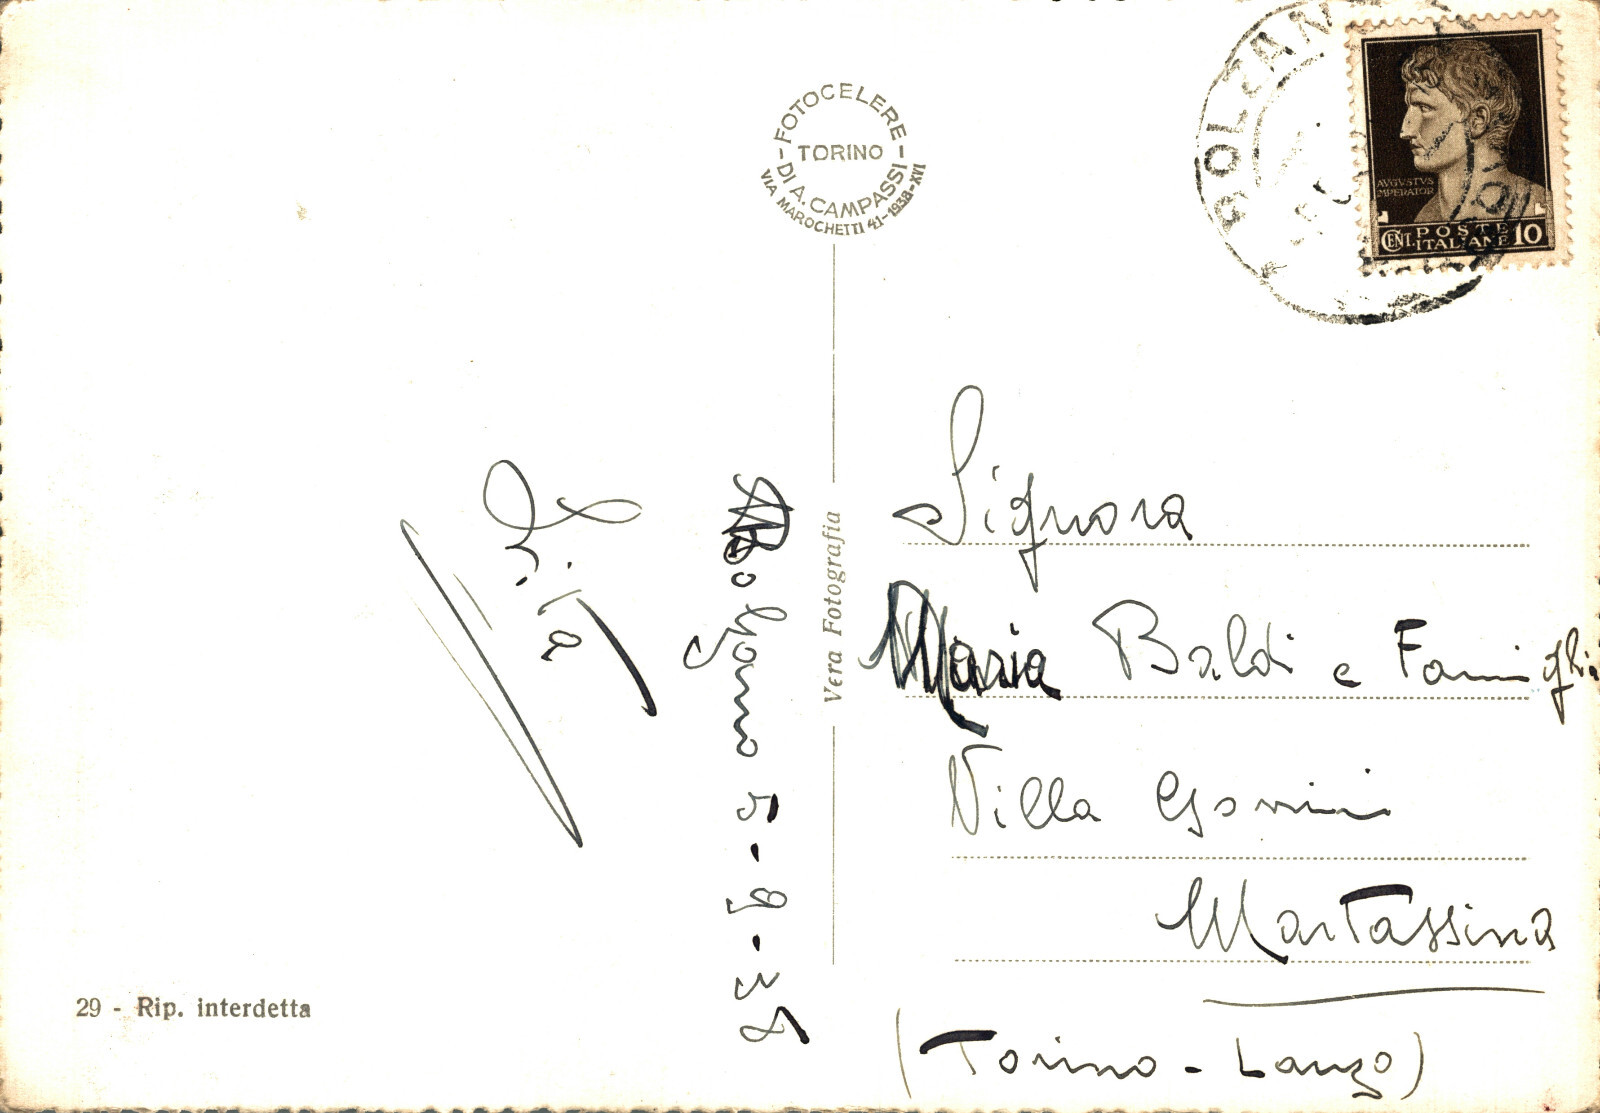 FOTOCELERE
TORINO
DI A. CAMPASSI
VIA MAROCHETTI 41-1938-XVI
BOLZANO
AVGVSTVS
IMPERATOR
CENT. POSTE ITALIANE 10
Vera Fotografia
Bolzano 5-9-38
Signora
Maria Baldi e Famiglia
Villa
Martassina
(Torino - Lanzo)
29 - Rip. interdetta